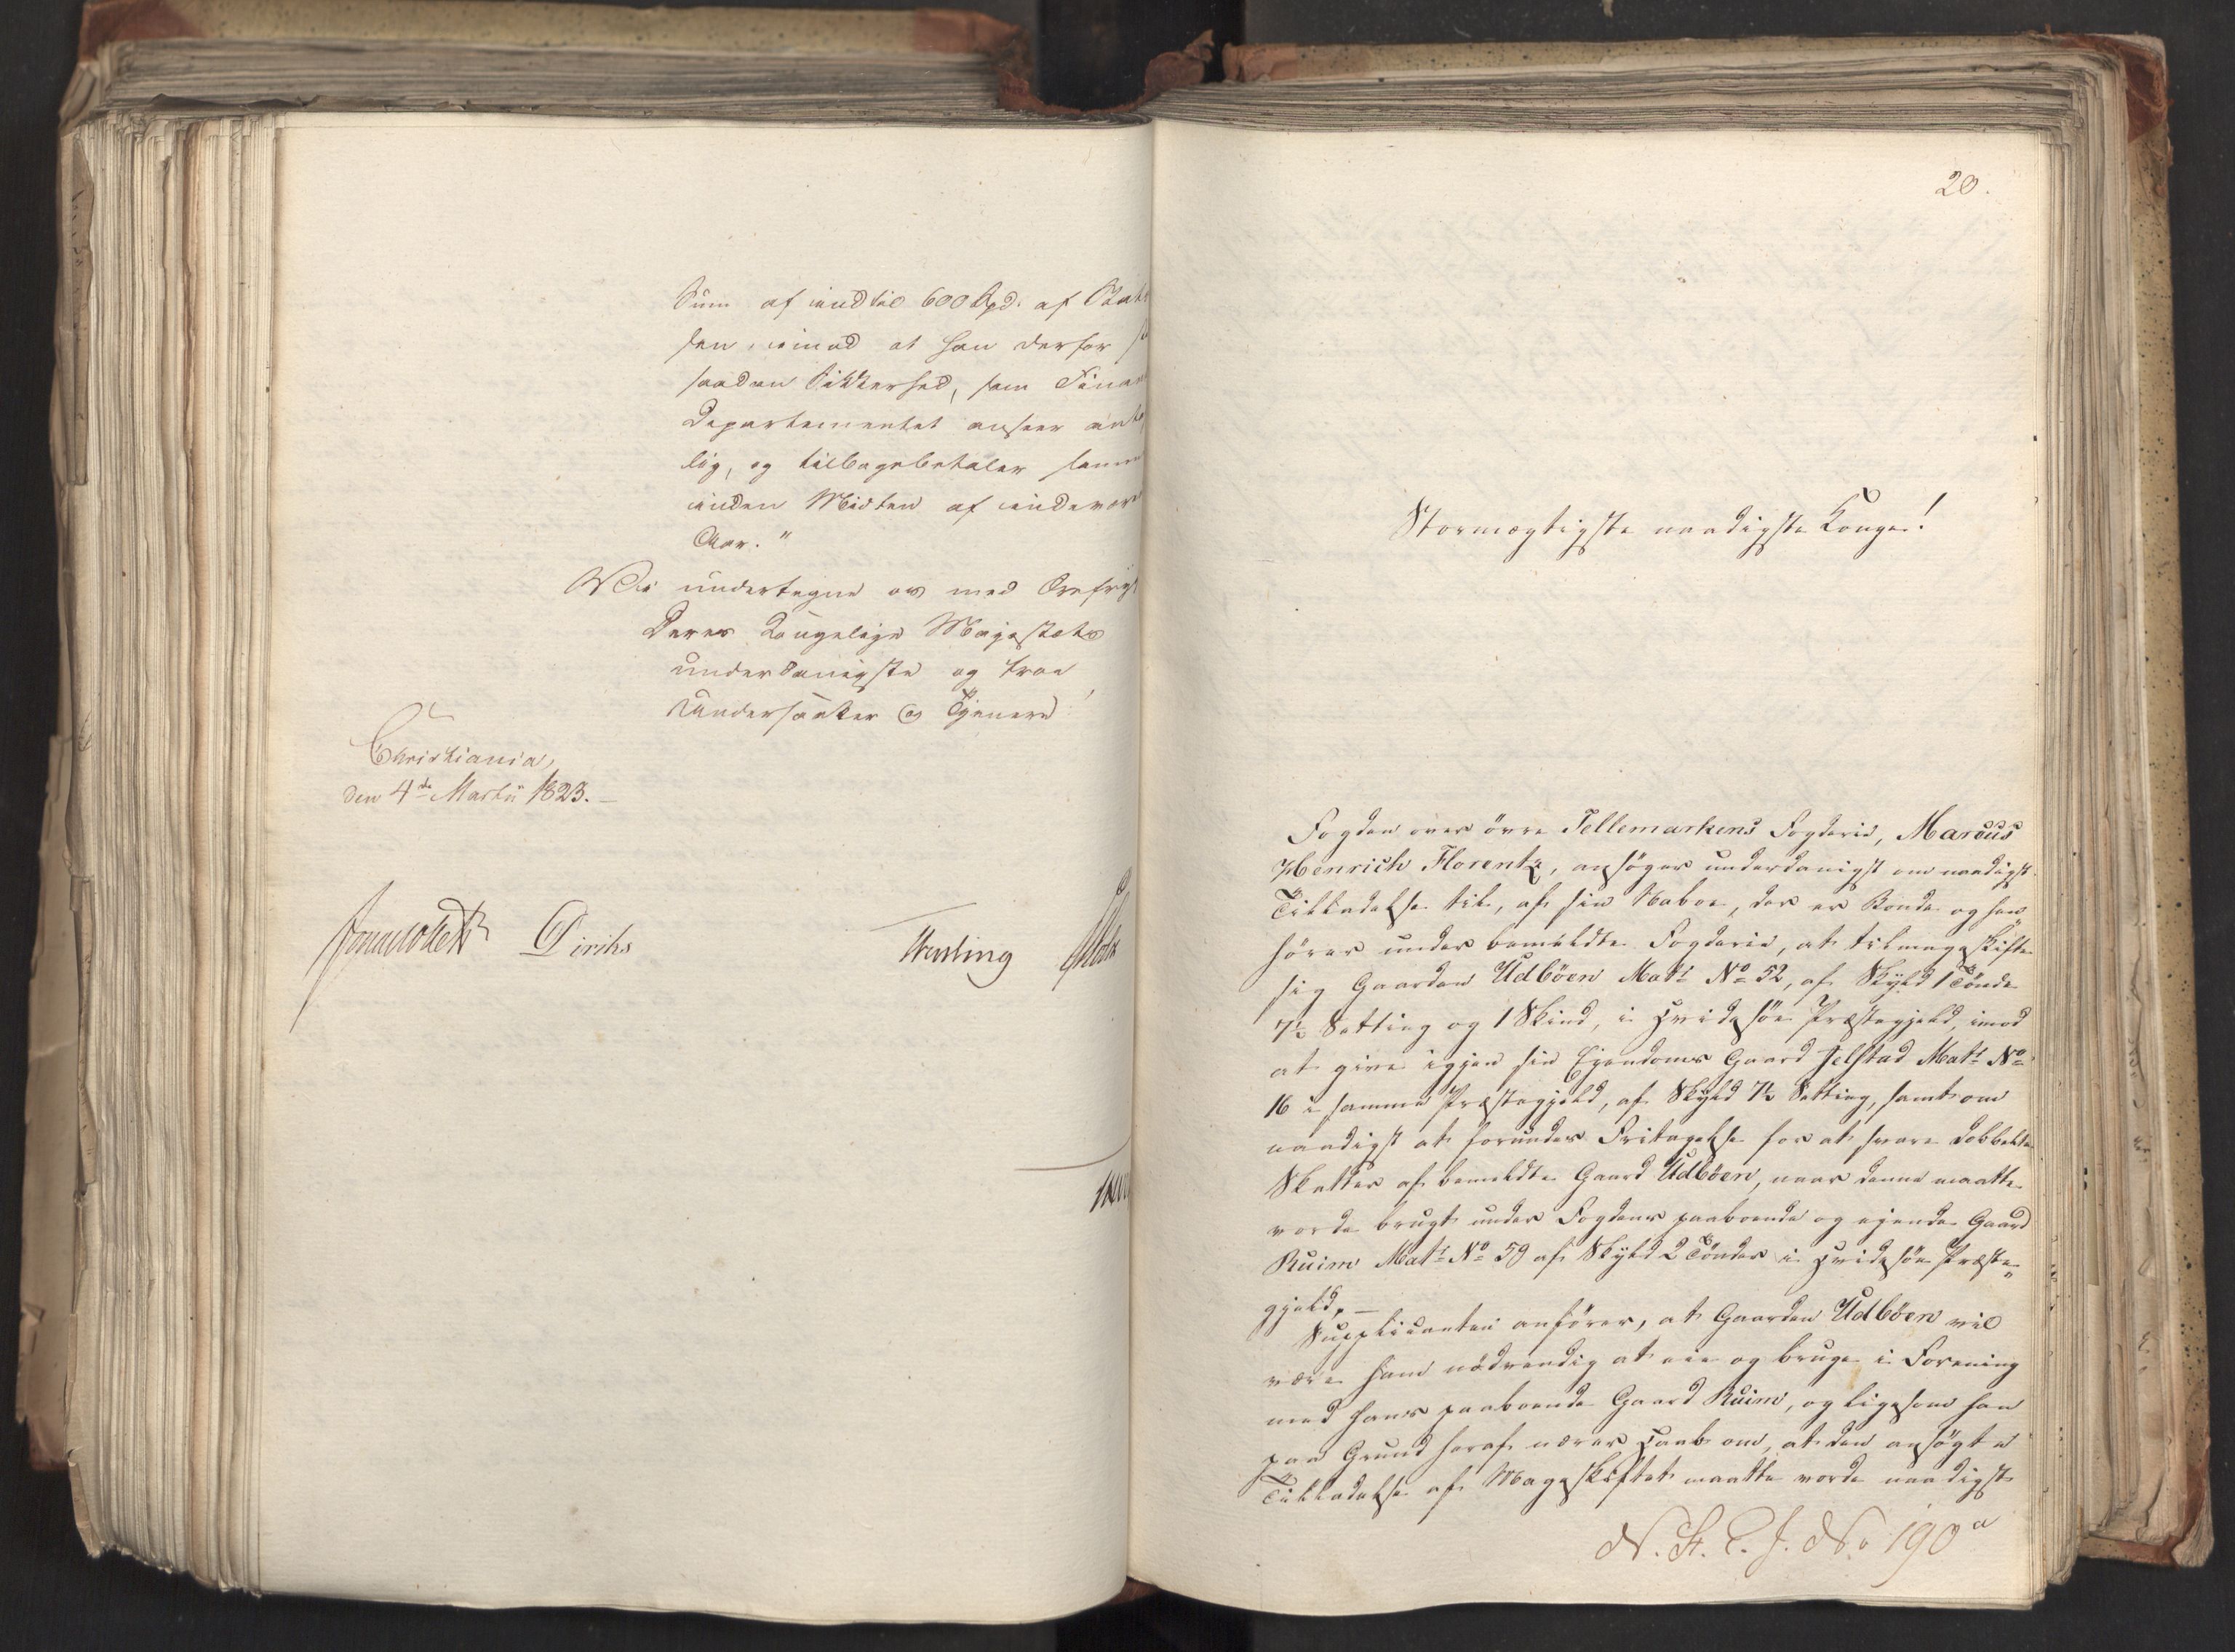 Sum af indtil 600 Spd. af Stats
sen, imod at han derfor
saadan Sikkerhed, som Finan
Departementet anseer ant
lig, og tilbagebetaler samme
inden Midten af indevær
Aar."
Vi undertegne os med Ærefryg
Deres Kongelige Majestæts
underdanigste og troe
Undersaatter og Tjenere!
Christiania,
den 4de Martii 1823.
Sommerhielm Diriks
Treschow
20.
Stormægtigste naadigste Konge!
Fogden over övre Tellemarkens Fogderie, Marcus
Henrich Florentz, ansöger underdanigst om naadigst
Tilladelse til, af sin Naboe, der er Bonde og hen
hörer under bemeldte Fogderie, at tilmageskifte
sig Gaarden Udböen Matr No 52, af Skyld 1 Tönde
7½ Setting og 1 Skind, i Hvidesöe Præstegjeld, imod
at give igjen sin Ejendoms Gaard Jelstad Matr No
16 i samme Præstegjeld, af Skyld 7½ Setting, samt om
naadigst at forundes Fritagelse for at svare dobbelte
Skatter af bemeldte Gaard Udböen, naar denne maatte
vorde brugt under Fogdens paaboende og ejende Gaard
Ruim Matr No 59 af Skyld 2 Tönder i Hvidesöe Præste„
gjeld. —
Supplicanten anförer, at Gaarden Udböen vil
være ham nödvendig at eie og bruge i Forening
med hans paaboende Gaard Ruim, og ligesom han
paa Grund heraf nærer Haab om, at den ansögte
Tilladelse af Mageskiftet maatte vorde naadigst
N. St. C. J. No 190a